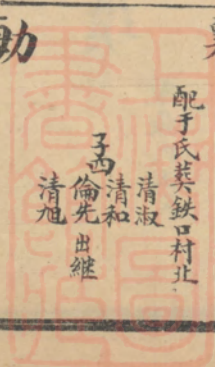 配于氏葬鉄口村北
子四
清淑
清和
倫先出継
清旭